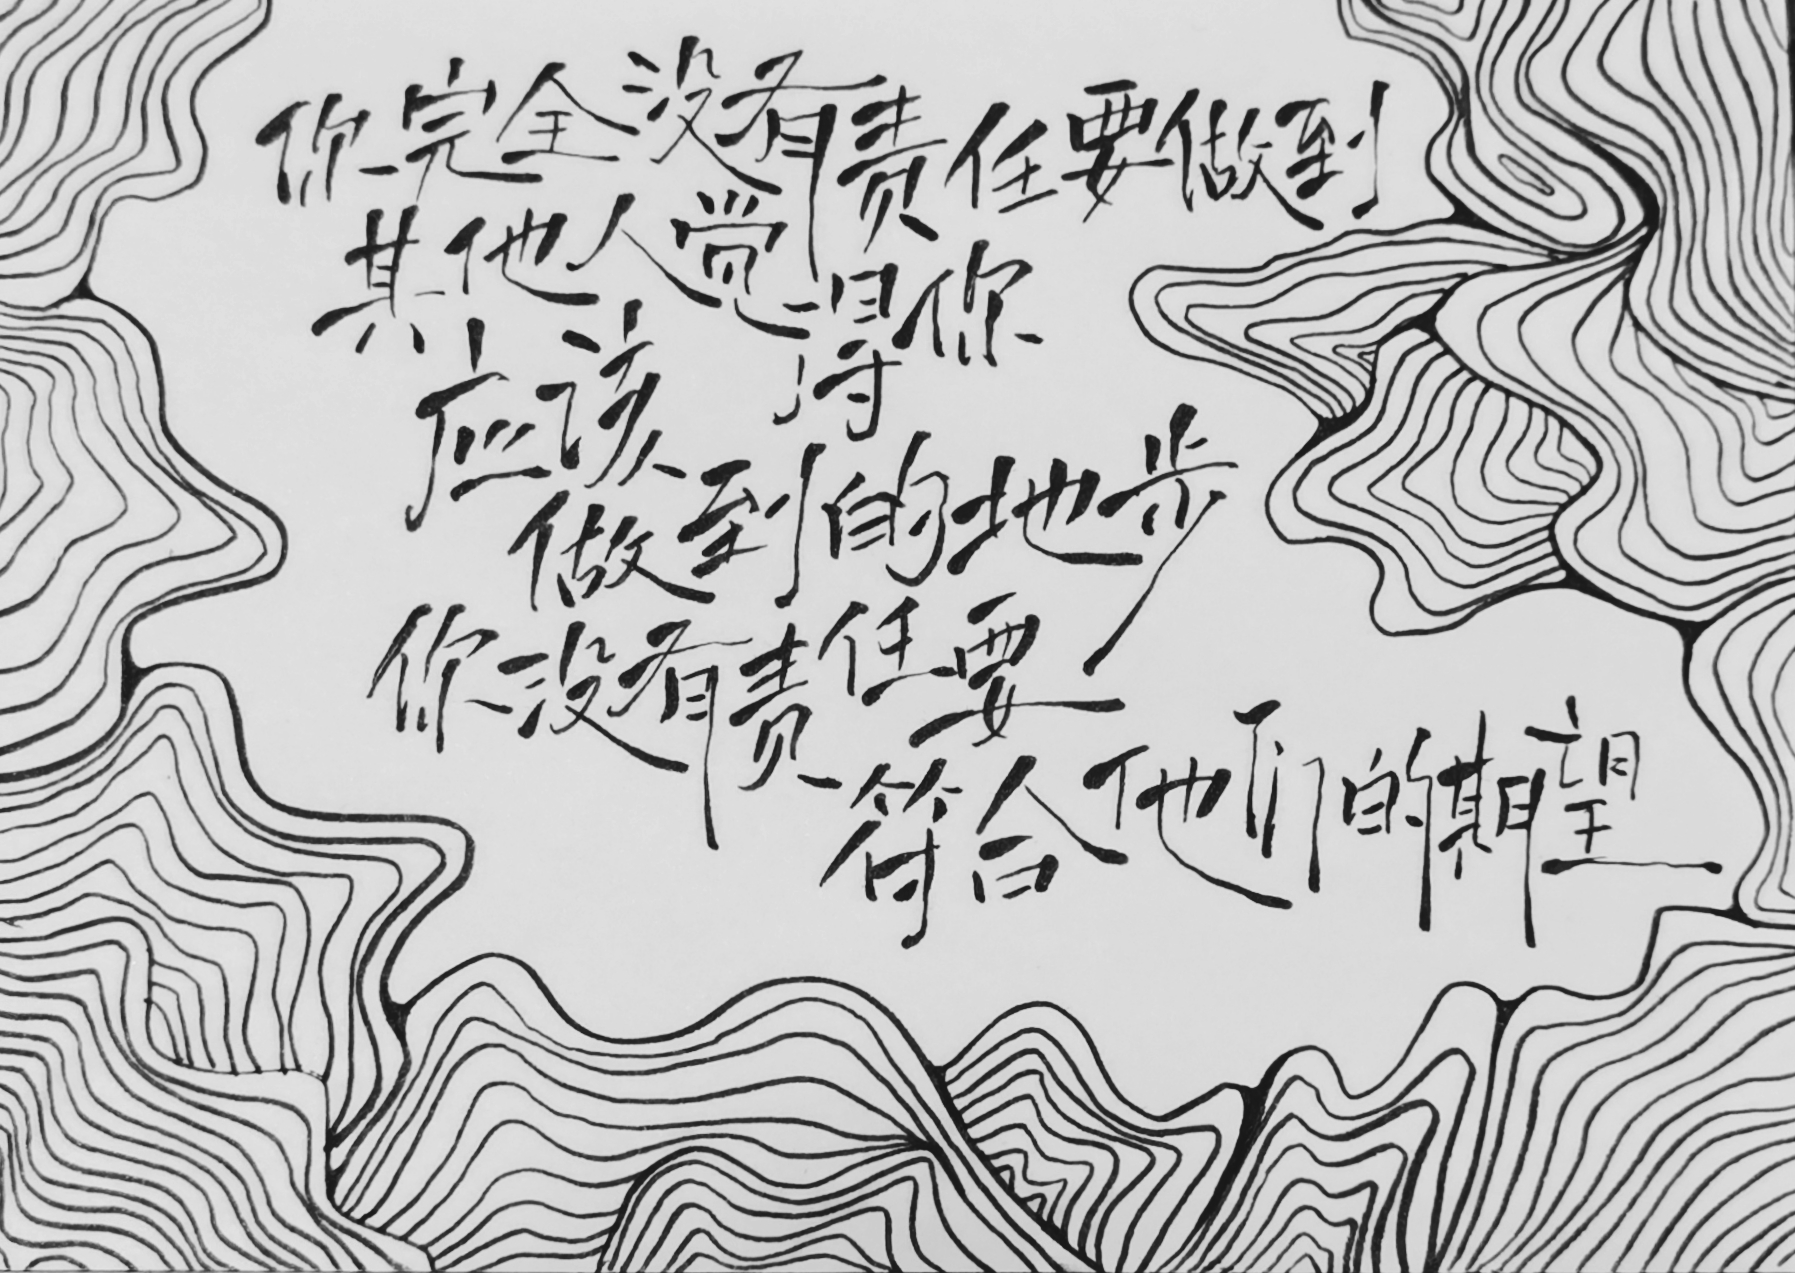 你完全没有责任要做到
其他人觉得你
应该
做到的地步
你没有责任要
符合他们的期望